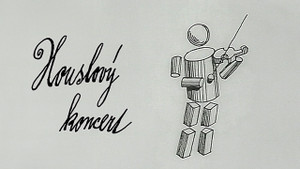 Houslový
koncert